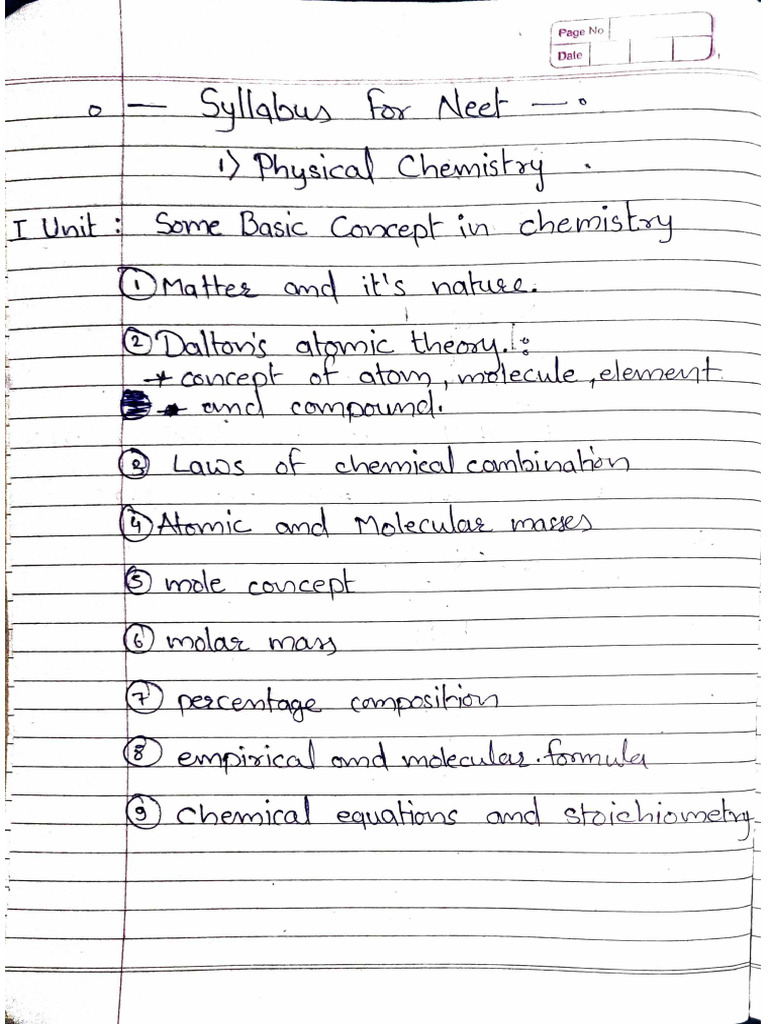 Page No
Date
o — Syllabus for Neet — o
1) Physical Chemistry .
I Unit : Some Basic Concept in chemistry
① Matter and it's nature.
② Dalton's atomic theory. :
* concept of atom, molecule, element
* and compound.
③ Laws of chemical combination
④ Atomic and Molecular masses
⑤ mole concept
⑥ molar mass
⑦ percentage composition
⑧ empirical and molecular. formula
⑨ chemical equations and stoichiometry.